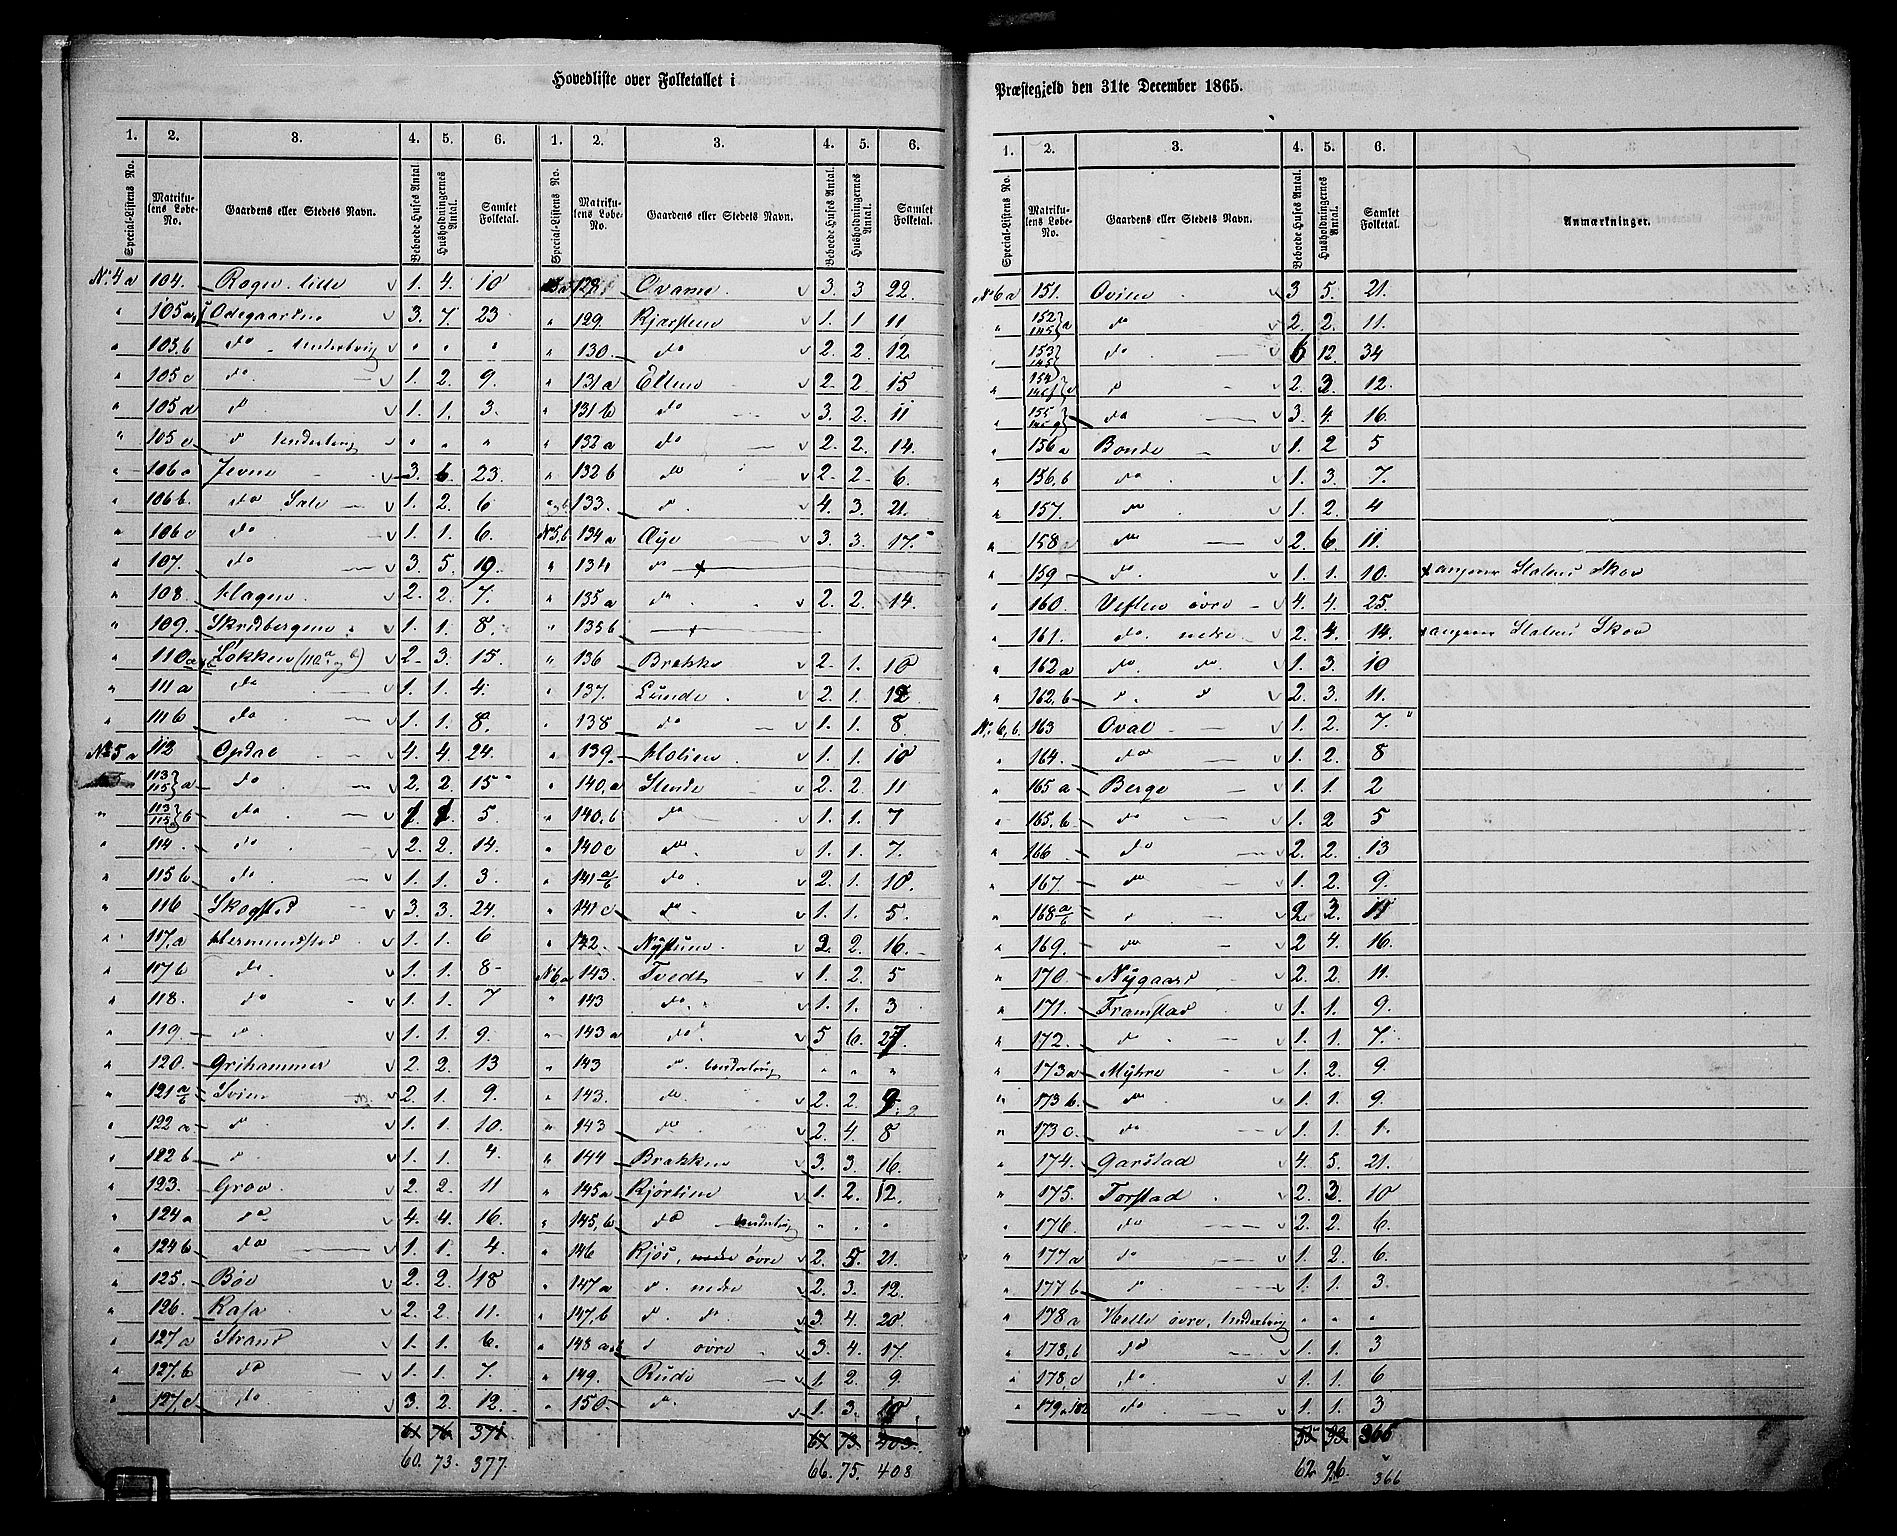 Hovedliste over Folketallet i
1. 2. 3. 4. 5. 6. 1. 2. 3. 4. 5. 6.
Special-Listens No. Matrikulens Løbe-No. Gaardens eller Stedets Navn. Beboede Huses Antal Husholdningernes Antal. Samlet Folketal. Special-Listens No. Matrikulens Løbe-No. Gaardens eller Stedets Navn. Beboede Huses Antal. Husholdningernes Antal. Samlet Folketal.
No. 4 a 104. Rogn lille 1. 4. 10
" 105 a Ødegaarden 3. 7. 23
" 105.b do underbrug " " "
" 105 c do. 1. 2. 9.
" 105 d d 1. 1. 3.
" 105 e d underbrug " " "
" 106 a Jevne 3. 6. 23.
" 106 b. do 1. 2. 6
" 106 c do. 1. 1. 6.
" 107. do 3. 5. 19.
" 108. Hagen 2. 2. 7.
" 109. Skridbergene 1. 1. 8.
" 110 a Løkken (110 a og b) 2. 3. 15.
" 111 a do. 1. 1. 4.
" 111 b do. 1. 1. 8.
No 5 a 112 Opdal 4. 4. 24.
113/115 a do 2. 2. 15
" 113/115 b do 1. 1. 5.
" 114. do 2. 2. 14.
" 115 b do. 1. 1. 3.
" 116 Skogstad 3. 3. 24.
" 117.a Hermundstad 1. 1. 6
" 117 b do. 1. 1. 8
" 118. do 1. 1. 7
" 119. d. 1. 1. 9.
" 120. Grihammer 2. 2. 13
" 121 a/b Svien 2. 1. 9.
" 122 a. d. 1. 1. 10.
" 122 b d. 1. 1. 4.
" 123. Grov. 2. 2. 11
" 124 a do 4. 4. 16.
" 124 b do 1. 1. 4.
" 125. Bøe 2. 2. 18
" 126. Rasa 2. 2. 11.
" 127 a Strand 1. 1. 6.
" 127.b do 1. 1. 7.
" 127.c do. 3. 2. 12.
61 76 371
60. 73. 377.
128. Qvame 3. 3 22.
" 129. Kjørstein 1. 1 11
" 130. do 2. 2. 12
" 131 a Ellen 2. 2. 15
" 131 b do 3. 2. 11
" 132 a do 2. 2. 14.
" 132 b do 2. 2. 6.
133. d. 4. 3. 21.
No 5,b 134 a Øye 3. 3. 17.
" 134 do
" 135 a do. 2. 2. 14.
" 135 b
" 136 Brekke 2. 1. 10
" 137. Lunde 2. 1. 12
" 138 do 1. 1. 8
" 139. Holien 1. 1. 10
" 140.a Stende 2. 2. 11
" 140.b do 1. 1. 7
" 140 c do 1. 1. 7.
" 141 a/b do 2. 1. 10.
" 141 c do 1. 1. 5.
" 142. Nystuen 2. 2. 16.
No 6 a 143. Tvedt 1. 2. 5
" 143 do. 1. 1. 3
" 143 a do. 5 6. 27.
" 143 d. underbrug " " "
" 143. do. 2. 2. 9
" 143 do. 2. 4. 8
" 144 Brekken 3. 3. 16.
" 145 a Kjørlien 1. 2. 12.
" 145.b do underbrug " " "
" 146 Kjøs, nedre øvre 2. 5. 21.
" 147 a d. nedre 2. 3. 12.
" 147.b d. d. 3. 4. 20.
" 148 a d øvre 3. 4. 17.
" 149. Rude 1 2. 9.
" 150. do 1. 3. 10
67 73 403.
66. 75. 408
Præstegjeld den 31te December 1865.
1. 2. 3. 4. 5. 6.
Special-Listens No. Matrikulens Løbe-No. Gaardens eller Stedets Navn. Beboede Huses Antal. Husholdningernes Antal. Samlet Folketal. Anmærkninger.
No 6 a 151. Qvien 3 5. 21.
" 152/145 a do 2. 2. 11.
" 153/145 do. 6 12. 34
" 154/145 d 2. 3. 12.
" 155/145 do 3. 4. 16
" 156 a Bonde 1. 2 5
" 156.b do. 1. 3. 7.
" 157. do 1. 2. 4
" 158 do 2. 6. 11.
" 159 do. 1. 1. 10. angaaer Statens Skov
" 160. Veflen øvre 4. 4. 25.
" 161. do. nedre 2. 4. 14. angaaer Statens Skov
" 162 a do do. 1. 3. 10
" 162.b d. d 2. 3. 11.
No. 6,b. 163 Qval 1. 2. 7.
" 164. do 1. 2. 8
" 165 a Berge 1. 1. 2
" 165.b do 1. 2 5
" 166 do 2. 2. 13
" 167. do 1. 2. 9.
" 168 a/b d 2. 3. 11
" 169. do 2 4. 16.
" 170. Nygaard 2. 2. 11.
" 171. Framstad 1. 1. 9.
" 172. d. 1. 1. 7.
" 173 a Myhre 1. 2. 9
" 173 b. do 1. 1. 9.
" 173 c. do 1. 1. 1.
" 174. Garstad 4. 5. 21.
" 175. Torstad 2. 3. 10
" 176. do 2. 2. 6.
" 177 a do 1. 2. 6.
" 177 b d. 1. 1. 3.
" 178 a Helle øvre, underbrug " " "
" 178.b do 1. 1. 3
" 178.c do. 1. 1. 6
" 179 a 182 do. 1. 1. 3
55 93. 365
62. 96. 366